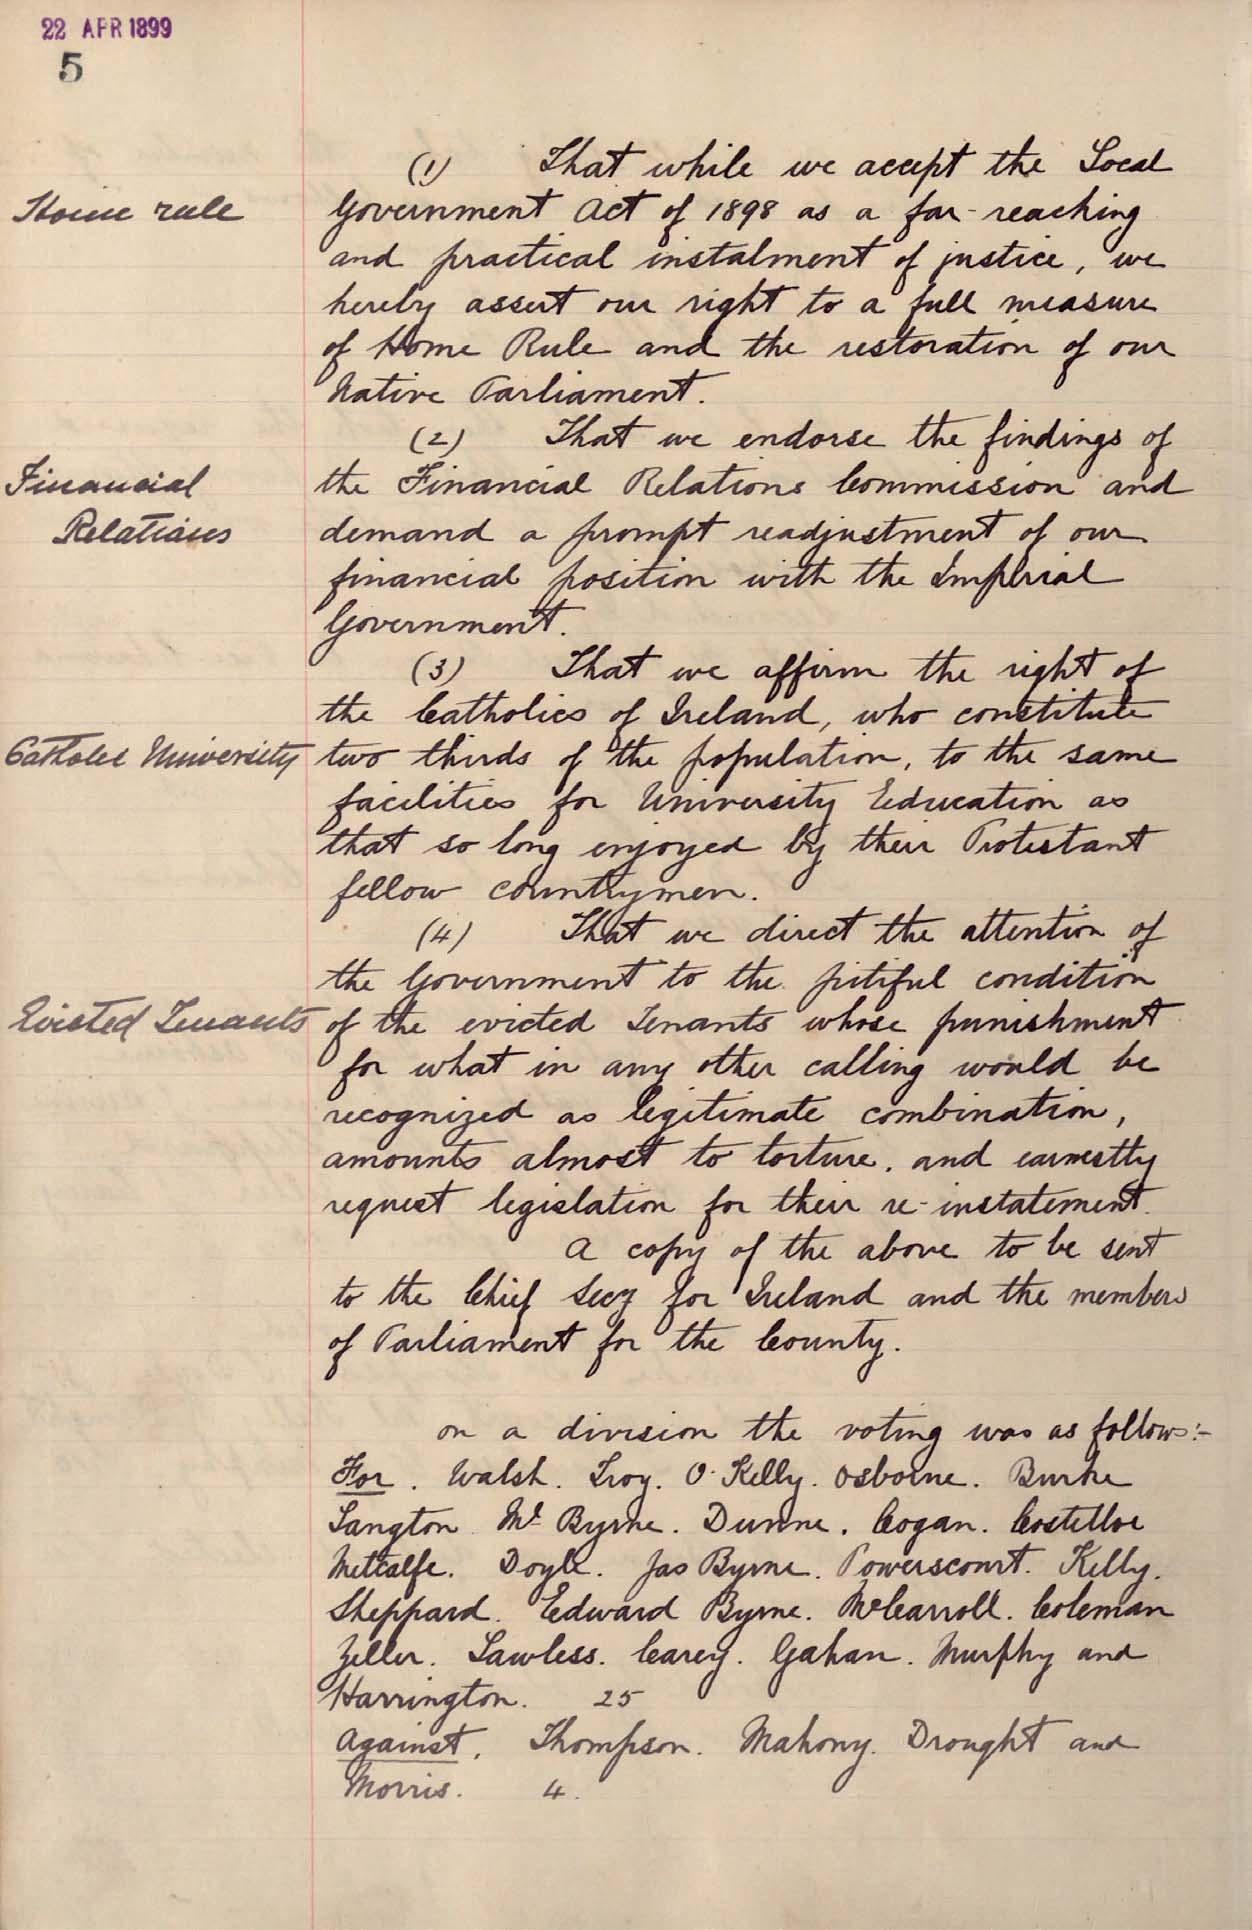 22 APR 1899
5
(1) That while we accept the Local
Home rule
Government Act of 1898 as a far-reaching
and practical instalment of justice, we
hereby assert our right to a full measure
of Home Rule and the restoration of our
Native Parliament.
(2) That we endorse the findings of
Financial
the Financial Relations Commission and
Relations
demand a prompt readjustment of our
financial position with the Imperial
Government.
(3) That we affirm the right of
the Catholics of Ireland, who constitute
Catholic University
two thirds of the population, to the same
facilities for University Education as
that so long enjoyed by their Protestant
fellow countrymen.
(4) That we direct the attention of
the Government to the pitiful condition
Evicted Tenants
of the evicted Tenants whose punishment
for what in any other calling would be
recognized as legitimate combination,
amounts almost to torture. and earnestly
request legislation for their re-instatement.
A copy of the above to be sent
to the Chief Secy for Ireland and the members
of Parliament for the County.
on a division the voting was as follows:-
For. Walsh. Troy. O'Kelly. Osborne. Burke
Langton Ml Byrne. Dunne. Cogan. Costelloe
Metcalfe. Doyle. Jas Byrne. Powerscourt. Kelly.
Sheppard. Edward Byrne. McCarroll. Coleman
Zeller. Lawless. Carey. Gahan. Murphy and
Harrington. 25
Against. Thompson. Mahony. Drought and
Morris. 4.